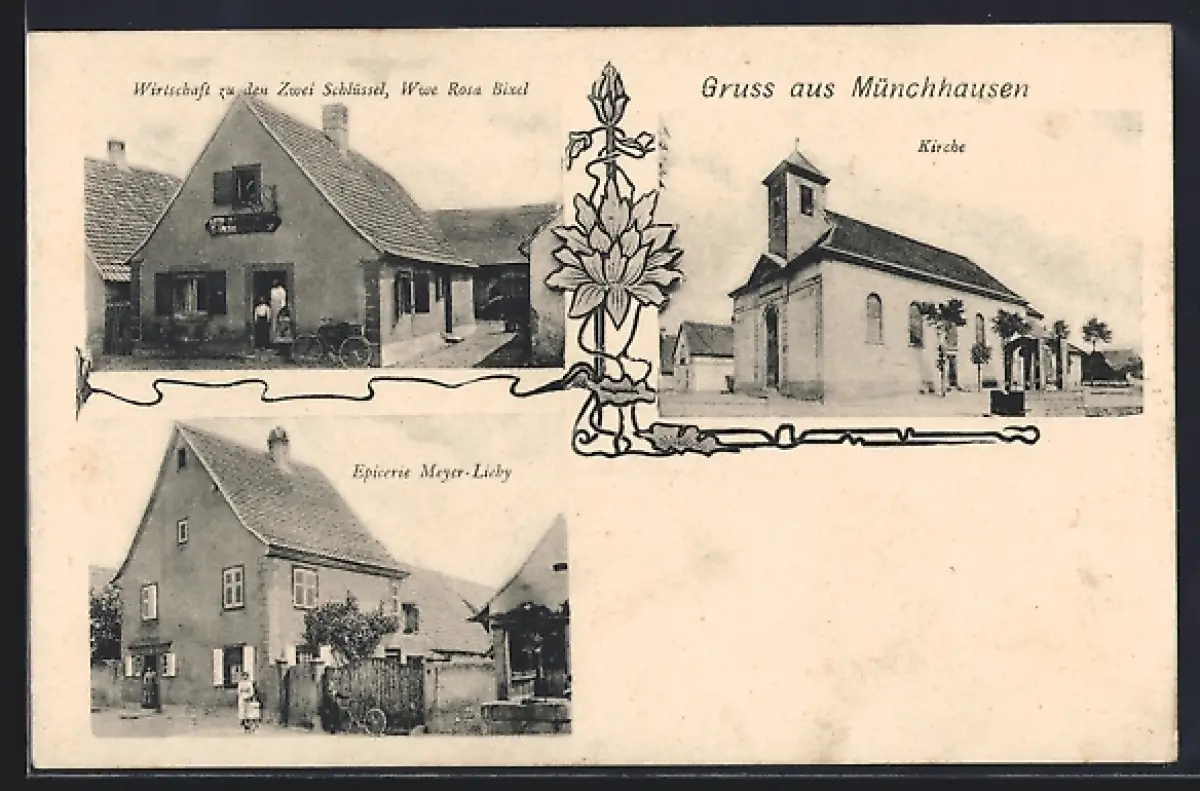 Wirtschaft zu den Zwei Schlüssel, Wwe Rosa Bixel
Gruss aus Münchhausen
Kirche
Epicerie Meyer-Lieby